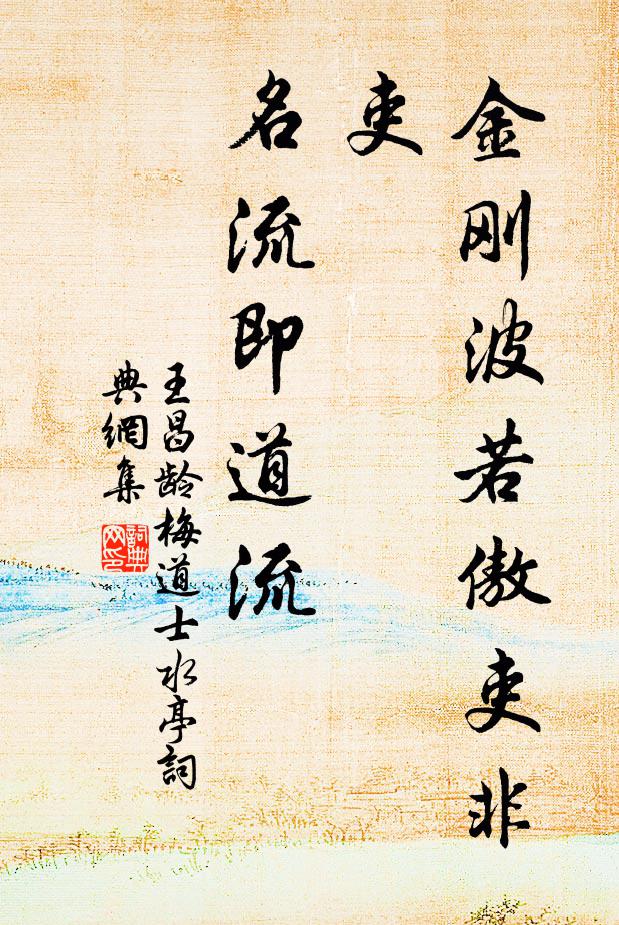 金刚波若傲吏非
吏
名流即道流
王昌龄梅道士水亭詞
典網集
詞典网印